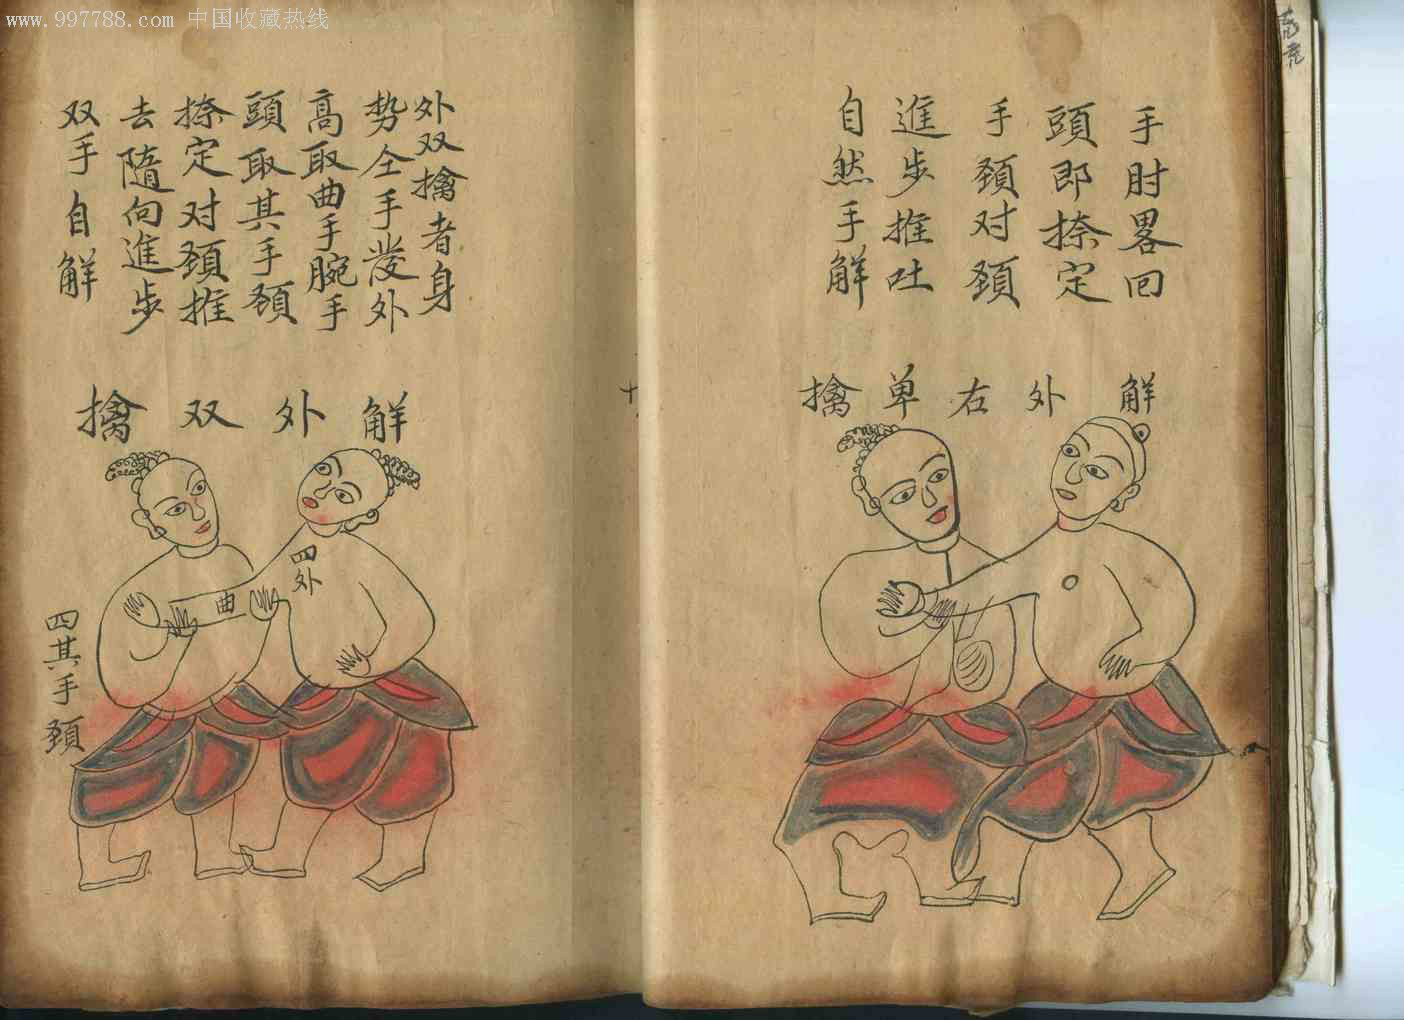 www.997788.com 中国收藏热线
手肘畧回
頭即捺定
手頚对頚
進步推吐
自然手解
解外右单擒
外双擒者身
势仝手發外
高取曲手腕手
頭取其手頚
捺定对頚推
去隨向進步
双手自解
解外双擒
四外
曲
四其手頚